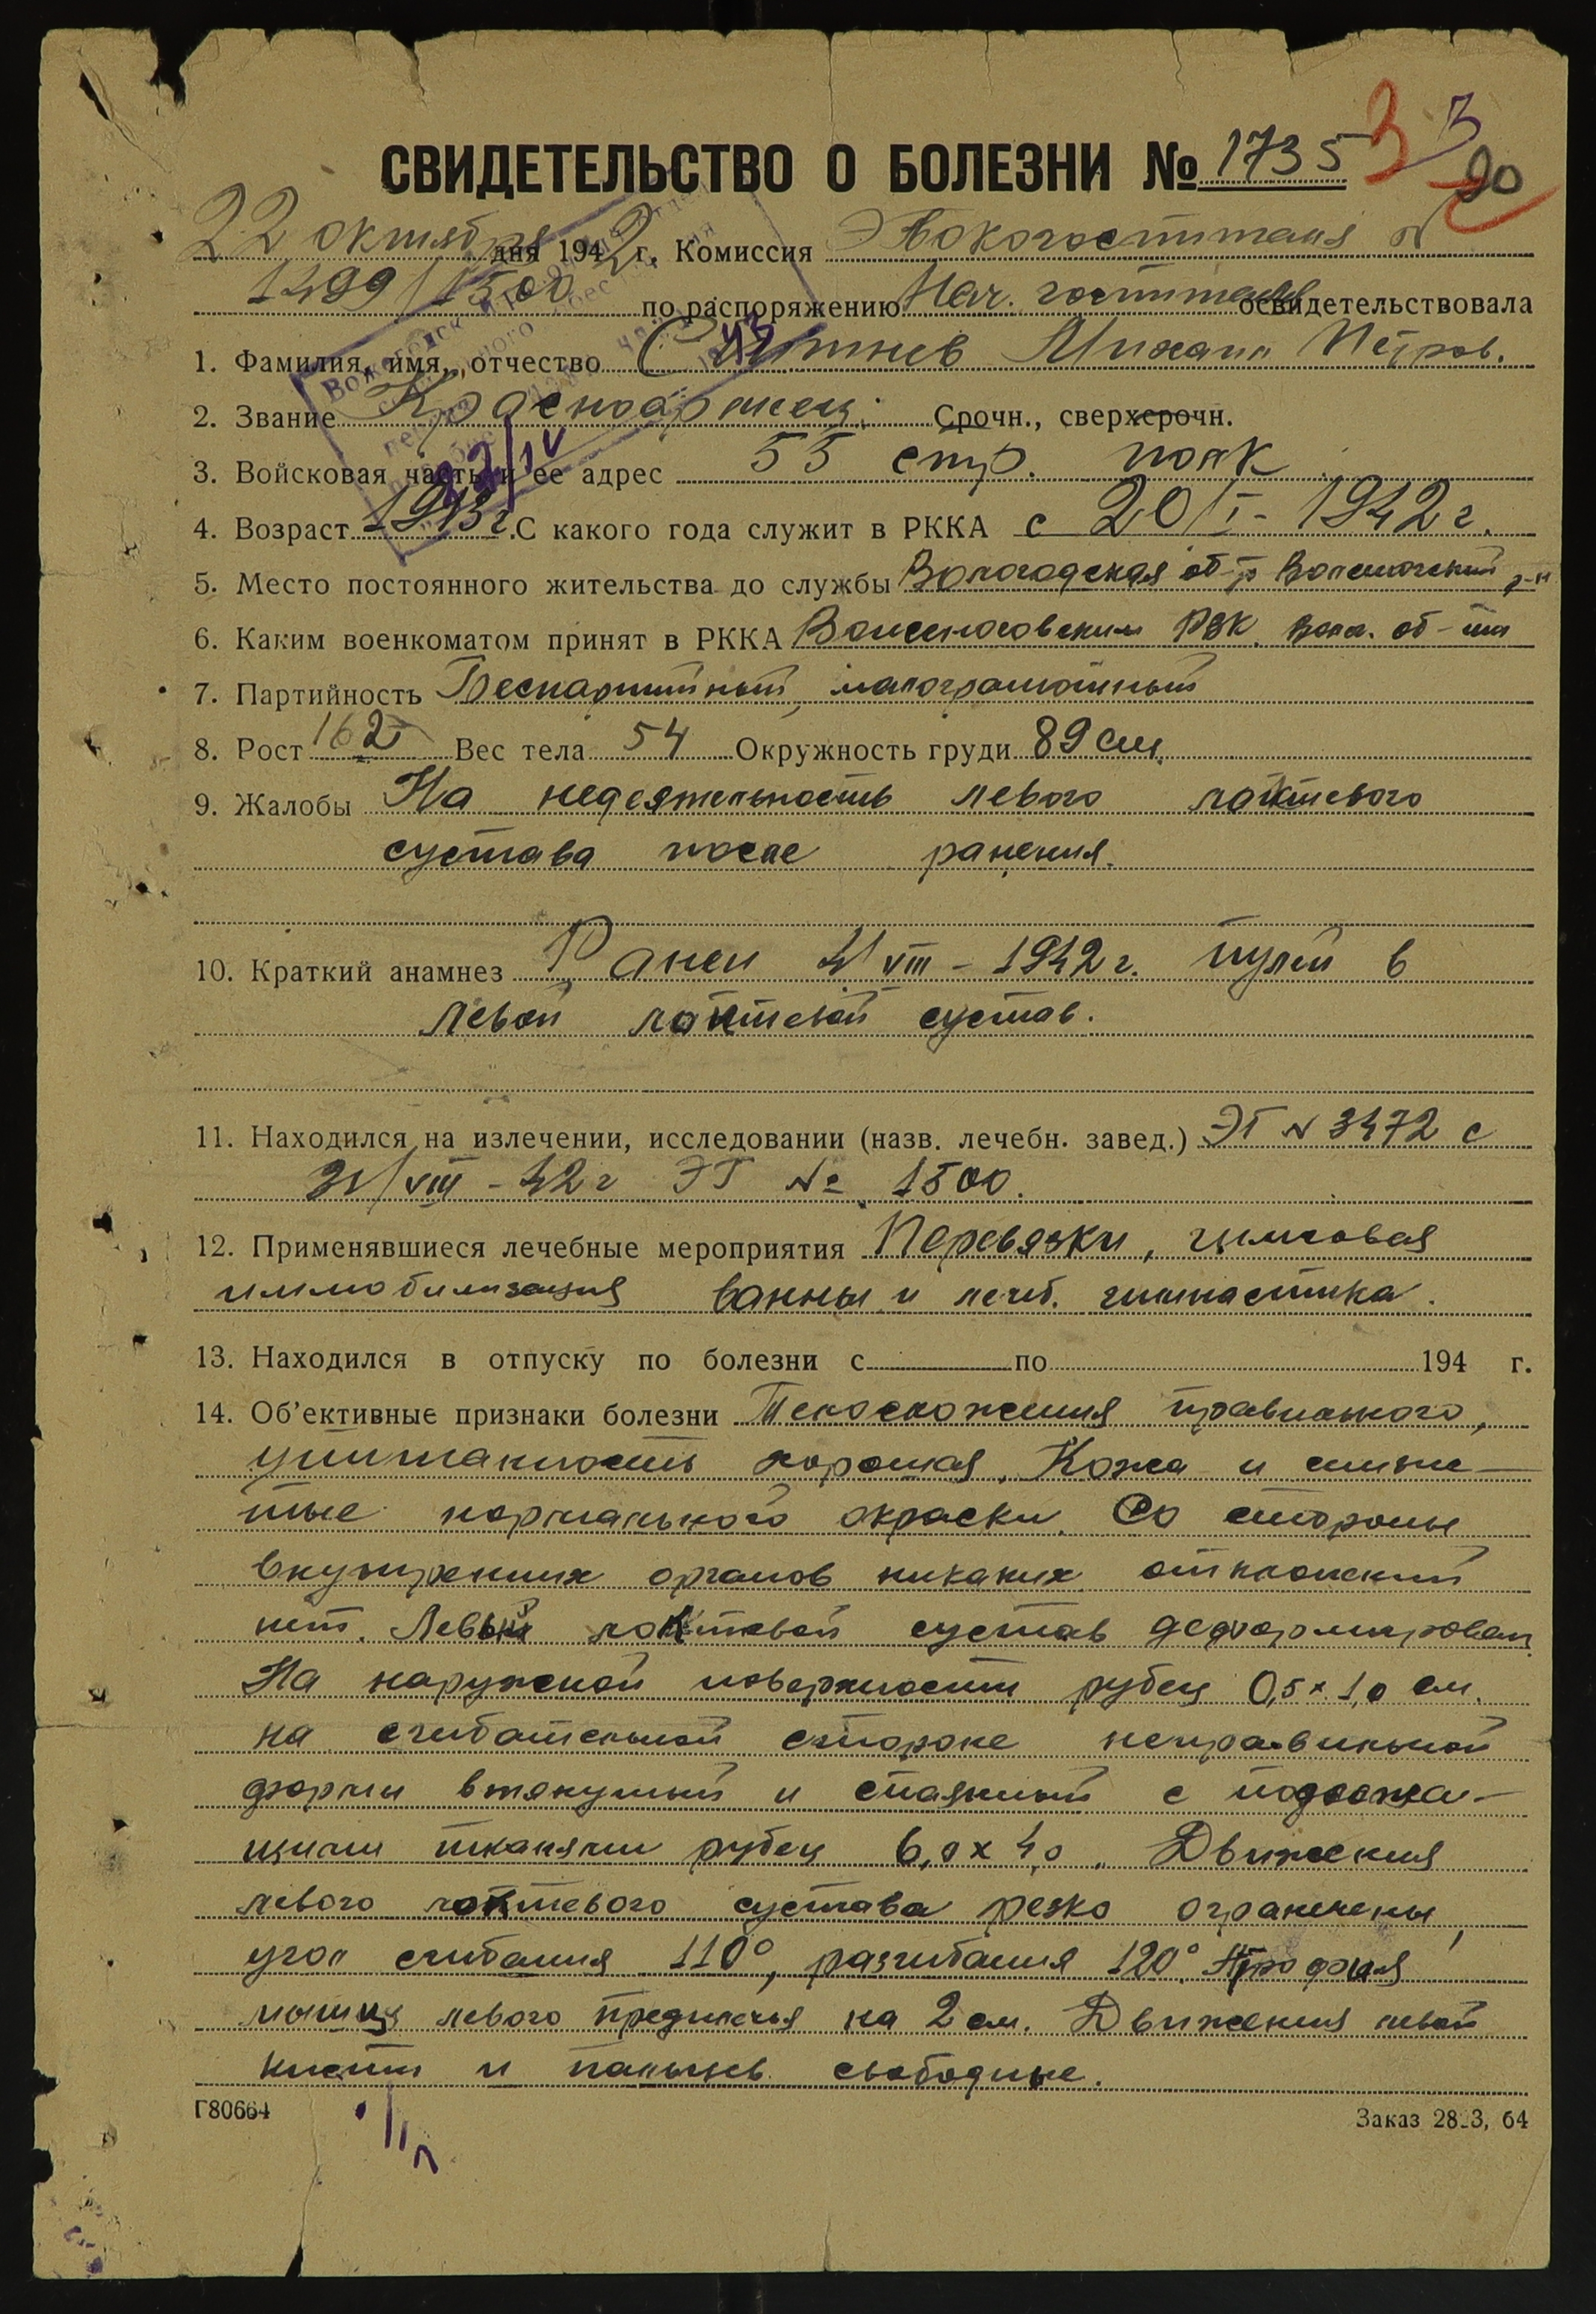 3 3
20
СВИДЕТЕЛЬСТВО О БОЛЕЗНИ № 1735
22 октября дня 1942 г. Комиссия Эвокогоспиталя №
1499/1500 по распоряжению Нач. госпиталя освидетельствовала
1. Фамилия, имя, отчество Михаил Петров.
2. Звание Красноармеец. Срочн., сверхсрочн.
3. Войсковая часть и ее адрес 55 стр. полк
4. Возраст 1913 г. С какого года служит в РККА с 20/I - 1942 г.
5. Место постоянного жительства до службы Вологодская об-ть р-н
6. Каким военкоматом принят в РККА РВК. Волог. об-ти
7. Партийность Беспартийный, малограмотный
8. Рост 162 Вес тела 54 Окружность груди 89 см.
9. Жалобы На недеятельность левого локтевого
сустава после ранения.
10. Краткий анамнез Ранен VIII - 1942 г. пулей в
левой локтевой сустав.
11. Находился на излечении, исследовании (назв. лечебн. завед.) ЭГ № 3472 с
/VIII - 42 г ЭГ № 1500.
12. Применявшиеся лечебные мероприятия Перевязки, гипсовая
иммобилизация ванны и лечеб. гимнастика.
13. Находился в отпуску по болезни с по 194 г.
14. Об'ективные признаки болезни Телосложения правильного,
упитанность хорошая. Кожа и слизис-
тые нормального окраски. Со стороны
внутренних органов никаких отклонений
нет. Левый локтевой сустав деформирован.
На наружной поверхности рубец 0,5 х 1,0 см.
на сгибательной стороне неправильной
формы втянутый и спаянный с подлежа-
щими тканями рубец 6,0 х 4,0. Движения
левого локтевого сустава резко ограничены,
угол сгибания 110°, разгибания 120°. Атрофия
мышц левого предплечья на 2 см. Движения левой
кисти и пальцев свободные.
Г80664
Заказ 28 3, 64